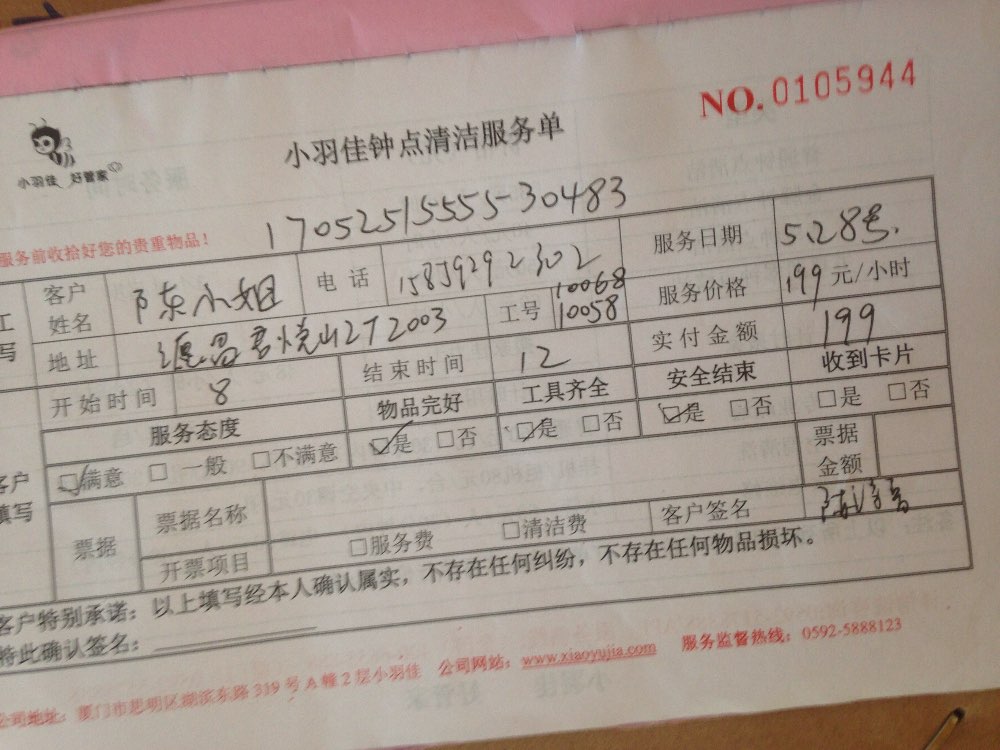 NO. 0105944
小羽佳钟点清洁服务单
小羽佳 好管家
17052515555-30483
服务前收拾好您的贵重物品！
客户姓名 陈小姐 电话 15859292302 服务日期 5.28号.
地址 君悦山27 2003 工号 10068 10058 服务价格 199 元/小时
开始时间 8 结束时间 12 实付金额 199
服务态度 物品完好 工具齐全 安全结束 收到卡片
☑满意 □一般 □不满意 ☑是 □否 ☑是 □否 ☑是 □否 □是 □否
客户填写
票据 票据名称 票据金额
开票项目 □服务费 □清洁费 客户签名
客户特别承诺：以上填写经本人确认属实，不存在任何纠纷，不存在任何物品损坏。
特此确认签名：
公司地址：厦门市思明区湖滨东路319号A幢2层小羽佳 公司网站：www.xiaoyujia.com 服务监督热线：0592-5888123